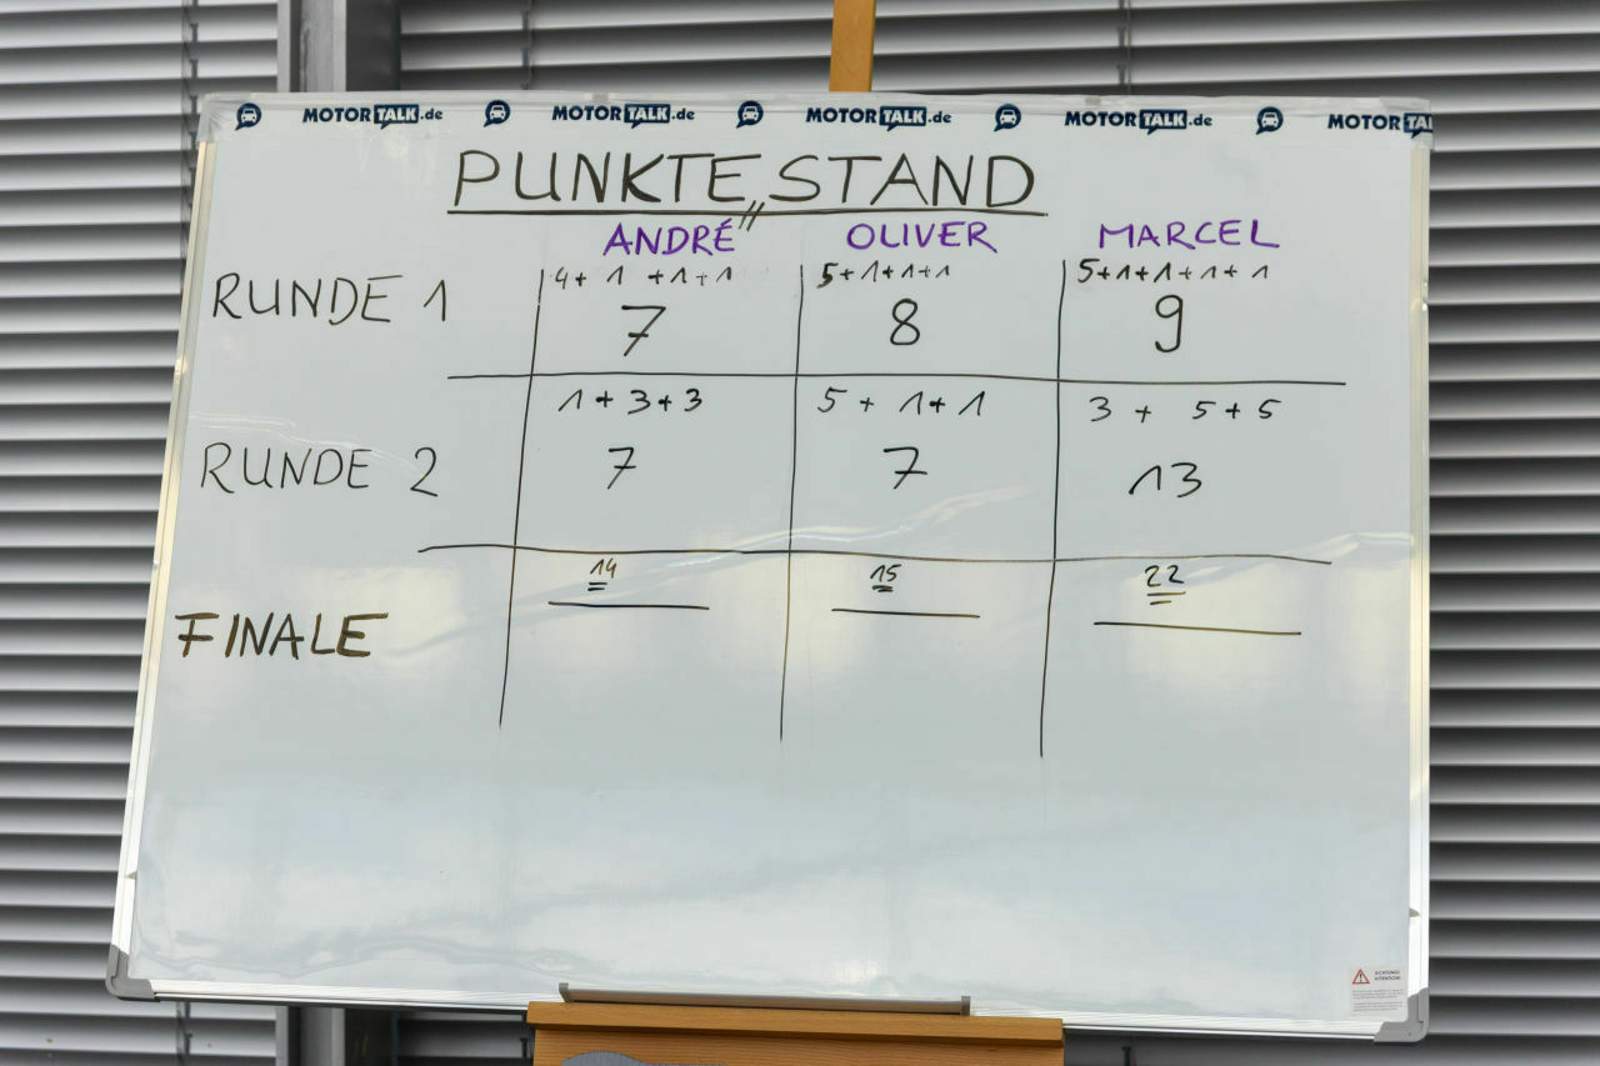 MOTORTALK.de MOTORTALK.de MOTORTALK.de MOTORTALK.de MOTORTAL
PUNKTE„STAND
ANDRÉ" OLIVER MARCEL
4+ 1 +1+1 5+1+1+1 5+1+1+1+1
RUNDE 1 7 8 9
1+3+3 5+1+1 3+ 5+5
RUNDE 2 7 7 13
14 15 22
FINALE